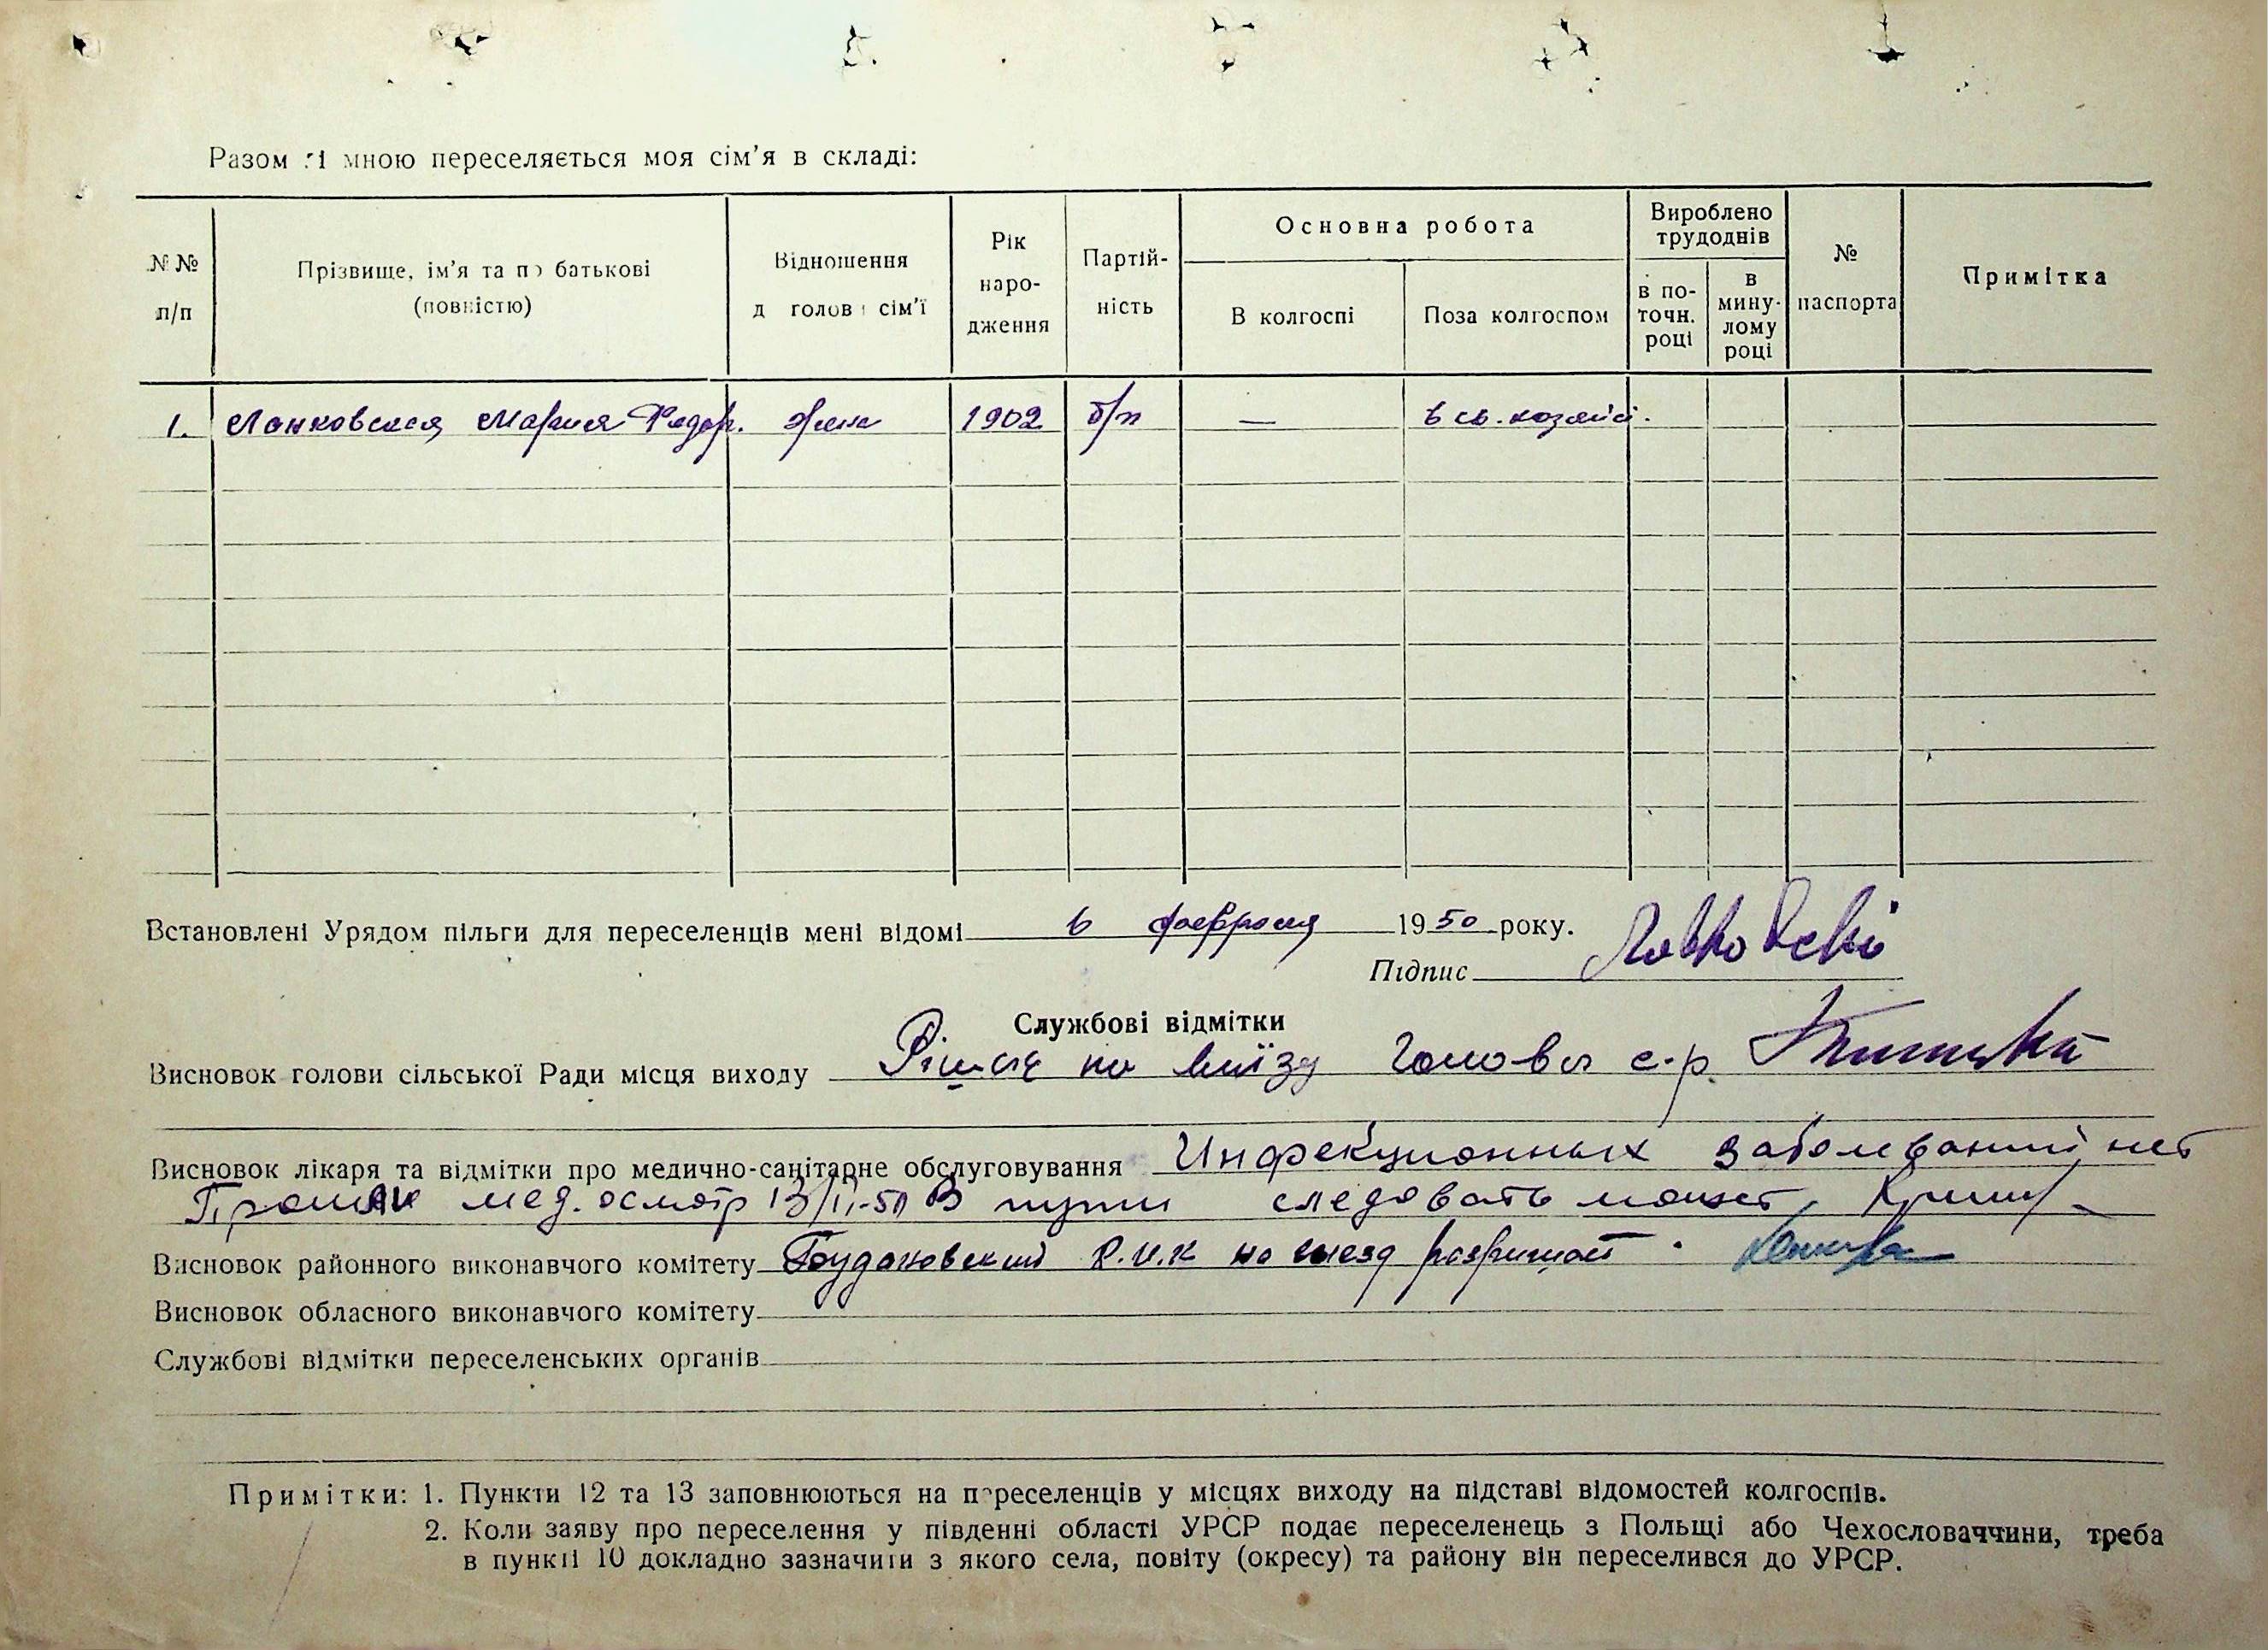 Разом зі мною переселяється моя сім'я в складі:
№ №
п/п
Прізвище, ім'я та по батькові
(повністю)
Відношення
д голов і сім'ї
Рік
наро-
дження
Партій-
ність
Основна робота
В колгоспі
Поза колгоспом
Вироблено
трудоднів
в по-
точн.
році
в
мину-
лому
році
№
паспорта
Примітка
1. Лонковская Мария Федор. жена 1902 б/п — в св. хозяйст.
Встановлені Урядом пільги для переселенців мені відомі 6 февраля 1950 року.
Підпис
Службові відмітки
Висновок голови сільської Ради місця виходу Рішає на виїзд Голова с.р.
Висновок лікаря та відмітки про медично-санітарне обслуговування Инфекционных заболеваний нет
Прошли мед. осмотр 13/II-50 В пути следовать может
Висновок районного виконавчого комітету Будановский Р.И.К на выезд разришает.
Висновок обласного виконавчого комітету
Службові відмітки переселенських органів
Примітки: 1. Пункти 12 та 13 заповнюються на переселенців у місцях виходу на підставі відомостей колгоспів.
2. Коли заяву про переселення у південні області УРСР подає переселенець з Польщі або Чехословаччини, треба
в пункті 10 докладно зазначити з якого села, повіту (окресу) та району він переселився до УРСР.